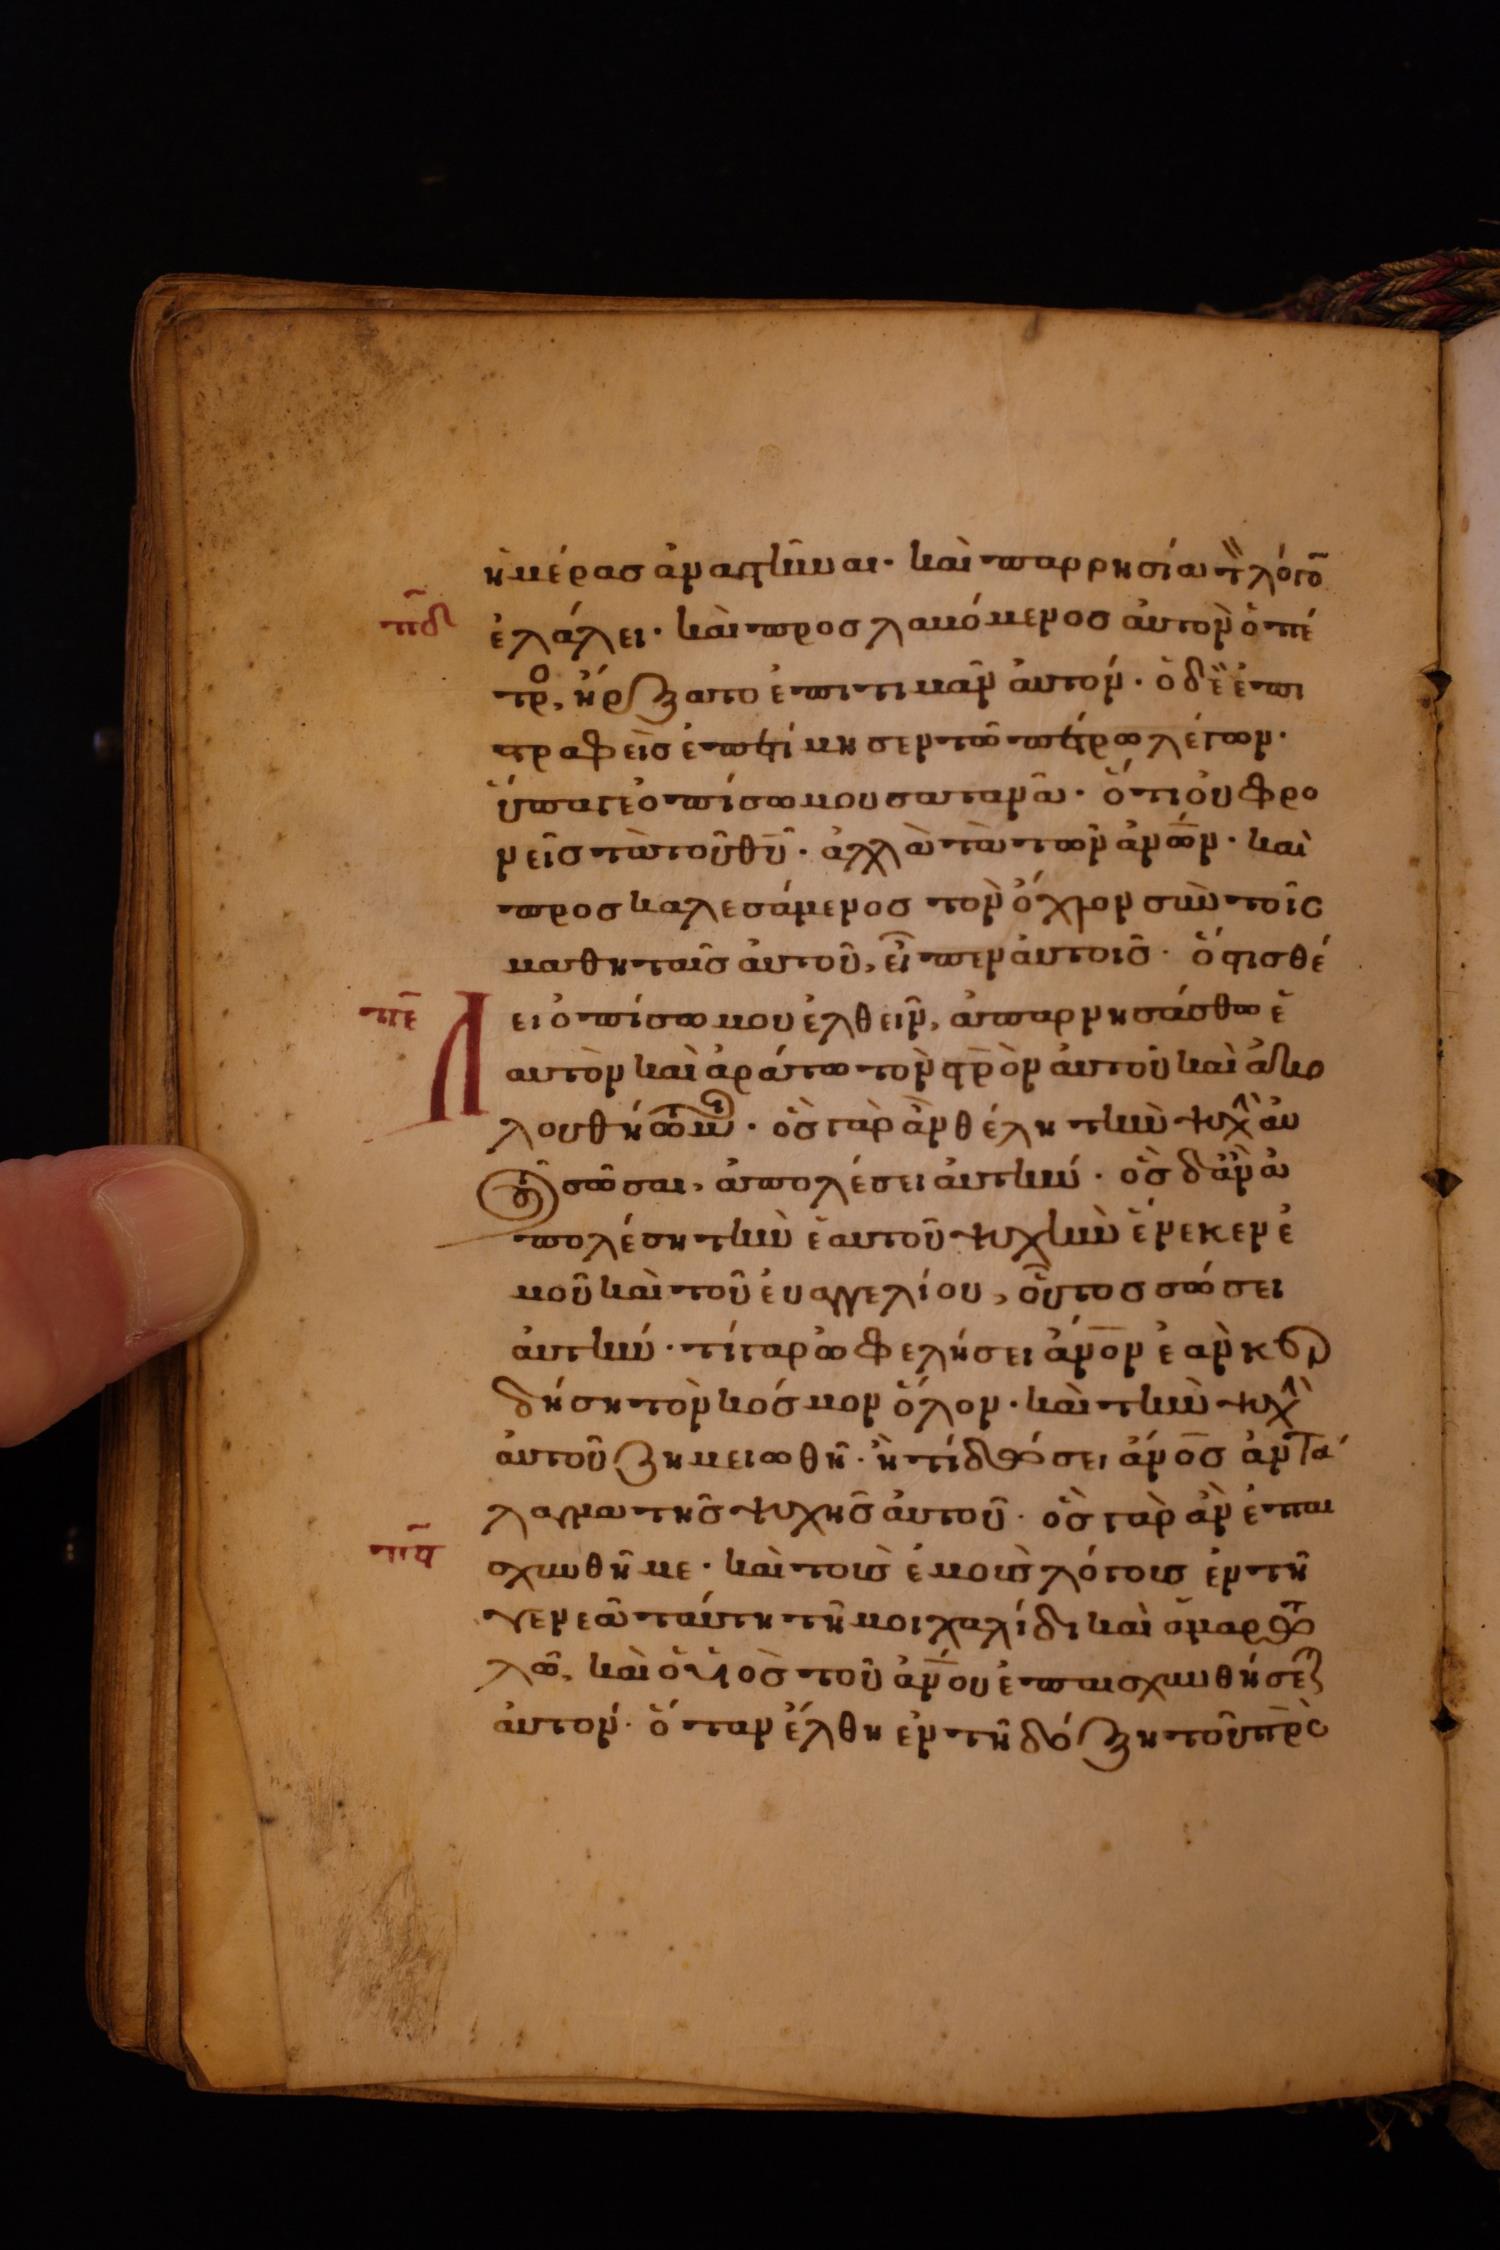 ἡμέρασ ἀναστῆναι· καὶ παρρησία τὸν λόγο̄
πδ̄
ἐλάλει· καὶ προσλαβόμενοσ αὐτὸν ὁ πέ
τρο, ἤρξατο ἐπιτιμᾶν αὐτόν· ὁ δὲ ἐπι
στραφεὶσ ἐπετίμησεν τῶ πέτρω λέγων·
ὕπαγε ὀπίσω μου σατανᾶ· ὅτι οὐ φρο
νεῖσ τὰ τοῦ θῡ· ἀλλὰ τὰ τῶν ἀν̄ων· καὶ
προσκαλεσάμενοσ τὸν ὄχλον σὺν τοῖσ
μαθηταῖσ αὐτοῦ, εἶπεν αὐτοῖσ· ὅστισ θέ
πε̄
λει ὀπίσω μου ἐλθεῖν, ἀπαρνησάσθω ἑ
αυτὸν καὶ ἀράτω τὸν στ̄ρὸν αὐτοῦ καὶ ἀκο
λουθήτω μοι· ὃσ γὰρ ἂν θέλη τὴν ψυχὴν αὐ
τοῦ σῶσαι, ἀπολέσει αὐτήν· ὃσ δ᾽ ἂν ἀ
πολέση τὴν ἑαυτοῦ ψυχὴν ἕνεκεν ἐ
μοῦ καὶ τοῦ εὐαγγελίου, οὗτοσ σώσει
αὐτήν· τί γὰρ ὠφελήσει ἄν̄ον ἐὰν κερ
δήση τὸν κόσμον ὅλον· καὶ τὴν ψυχὴν
αὐτοῦ ζημειωθῆ· ἢ τί δώσει ἄν̄οσ ἀντά
λαγμα τῆσ ψυχῆσ αὐτοῦ· ὃσ γὰρ ἂν ἐπαι
πϛ̄
σχυνθῆ με· καὶ τοὺσ ἐμοὺσ λόγουσ ἐν τῆ
γενεᾶ ταύτη τῆ μοιχαλίδι καὶ ἁμαρτω
λῶ, καὶ ὁ υἱὸσ τοῦ ἀν̄ου ἐπαισχυνθήσεται
αὐτόν· ὅταν ἔλθη ἐν τῆ δόξη τοῦ πρ̄σ